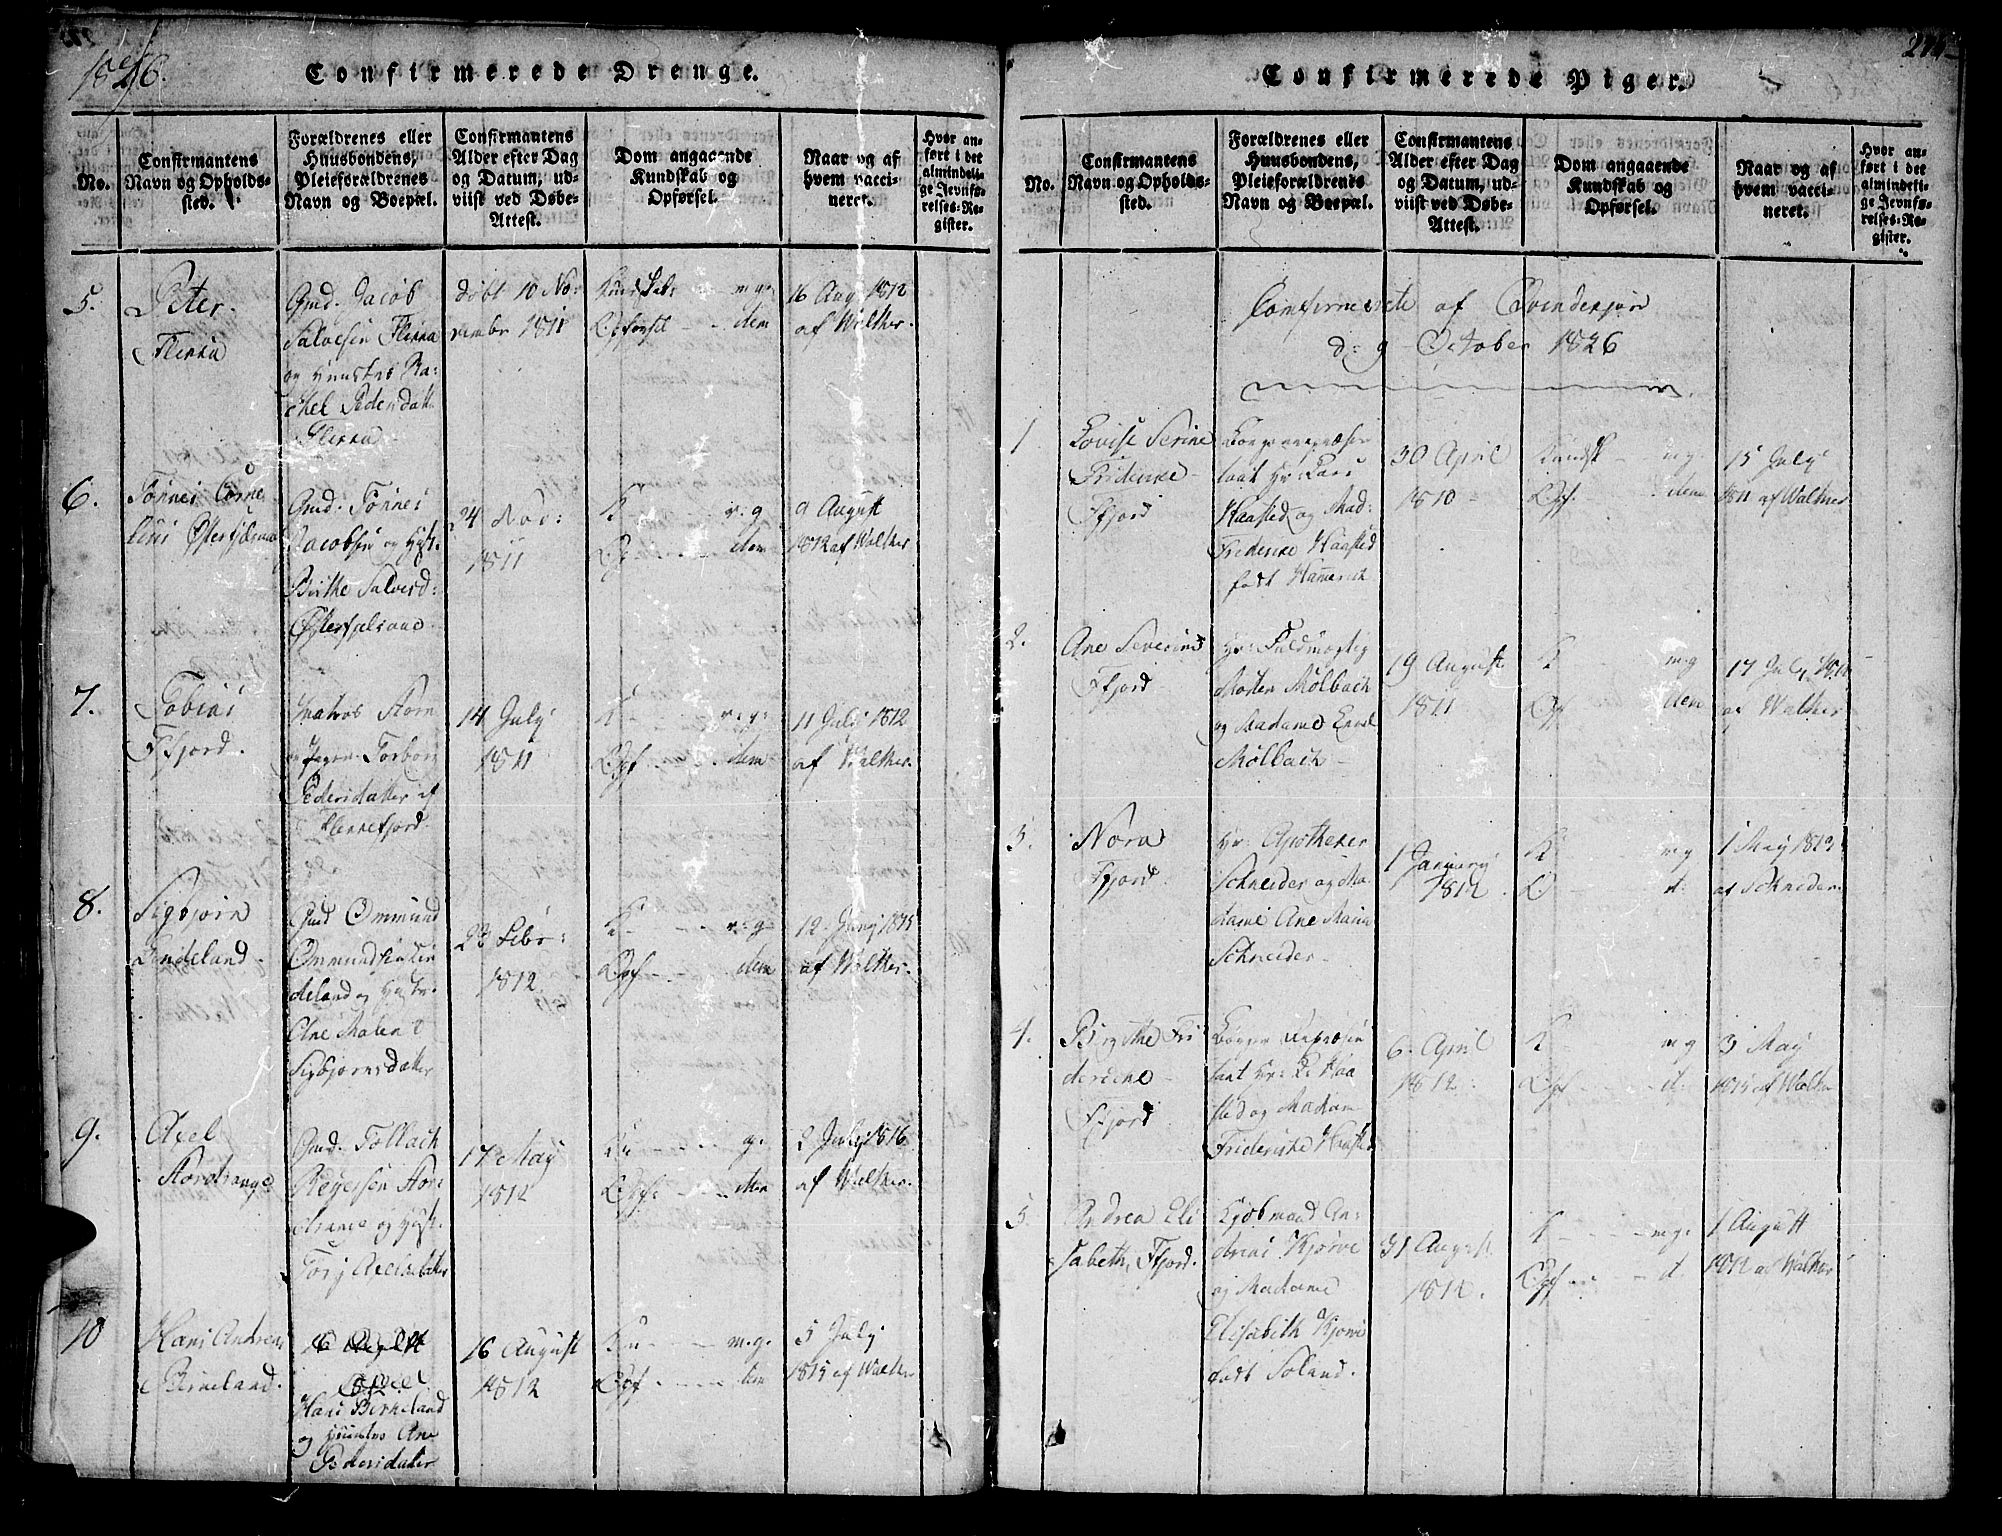 1826.
Confirmerede Drenge.
No.
Confirmantens
Navn og Opholds-
sted.
Forældrenes eller
Huusbondens,
Pleieforældrenes
Navn og Boepæl.
Confirmantens
Alder efter Dag
og Datum, ud-
viist ved Døbe-
Attest.
Dom angaaende
Kundskab og
Opførsel.
Naar og af
hvem vacci-
neret.
Hvor an-
ført i det
almindeli-
ge Jevnfø-
relses-Re-
gister.
5.
Peter
Flikka
Gmd. Jacob
Salvesen Flikka
og Huustro Ra-
chel Pedersdatt
Flikka
døbt 10 No-
vember 1811
Kundskab: m.g.
Opførsel - - dem
16 Aug 1812
af Walther.
6.
Tönnes Corne
lius
Gmd. Tönnes
Jacobsen og Hust.
Birthe Salvesd:
24 Nov:
1811
K v.g
Op - - dem
9 August
1812 af Walther
7.
Tobias
Ffjord.
Matros
Torborg
Pedersdatter af
Flekkefjord.
14 July
1811
K - v.g.
Opf. - - dem
11 July 1812
af Walther.
8.
Sigbjörn
Lindeland
Gmd Ommund
Ommundsen Lin
deland og Hustr.
Ane Malene
Sigbjörnsdatter
22 Febr:
1812.
K - - v.g
Opf - - dem
12. Juny 1815
af Walther.
9.
Axel
Stordrange
Gmd. Tollach
Reyersen Stor
drange og Hust.
Tory Axelsdatter
17 May
1812
Ku - - g.
Opf: - - dem
2 July 1816
af Walther.
10
Hans Andreas
Birkeland.
Hans Birkeland
og Huustro Ane
Pedersdatter
16 August
1812
Ku - - m.g.
Opf. - - dem
5 July
1815 af Walther
Confirmerede Piger.
No.
Confirmantens
Navn og Opholds-
sted.
Forældrenes eller
Huusbondens,
Pleieforældrenes
Navn og Boepæl.
Confirmantens
Alder efter Dag
og Datum, ud-
viist ved Døbe-
Attest.
Dom angaaende
Kundskab og
Opførsel.
Naar og af
hvem vacci-
neret.
Hvor an-
ført i det
almindeli-
ge Jevnfø-
relses-Re-
gister.
Confirmerete af Qvindekjön
d: 9 October 1826
1
Lovise Serine
Friderike
Ffjord
Borgerrepræsen
tant Hr: Lars
Haasted og Mad:
Friderike Haasted
født Hamerich
30 April
1810
Kundsk - mg.
Opf. - dem
15 July
1811 af Walther
2.
Ane Severine
Ffjord
Hr: Fuldmægtig
Morten Mölbach
og Madame
Mölbach
19 August
1811
K - mg
Opf - dem
17 July 1812
af Walther
3.
Nora
Ffjord.
Hr: Apotheker
Schneider og Ma
dame Ane Maria
Schneider
1 January
1812.
K - mg
O - d.
1 May 1813
af Schneider.
4.
Birgithe Fri
deriche
Ffjord
Borger repræsen
tant Hr: L. Haa
sted og Madam
Frideriche Haasted
6. April
1812.
K - mg
Opf - - - d.
3 May
1815 af Walther
5.
Andrea Eli
sabeth, Ffjord.
Kjöbmand An-
dreas Kjörve
og Madame
Elisabeth Kjörve
født Soland.
31 August
1812.
K - - - mg.
Opf - - d.
1 August
1812 af Walther